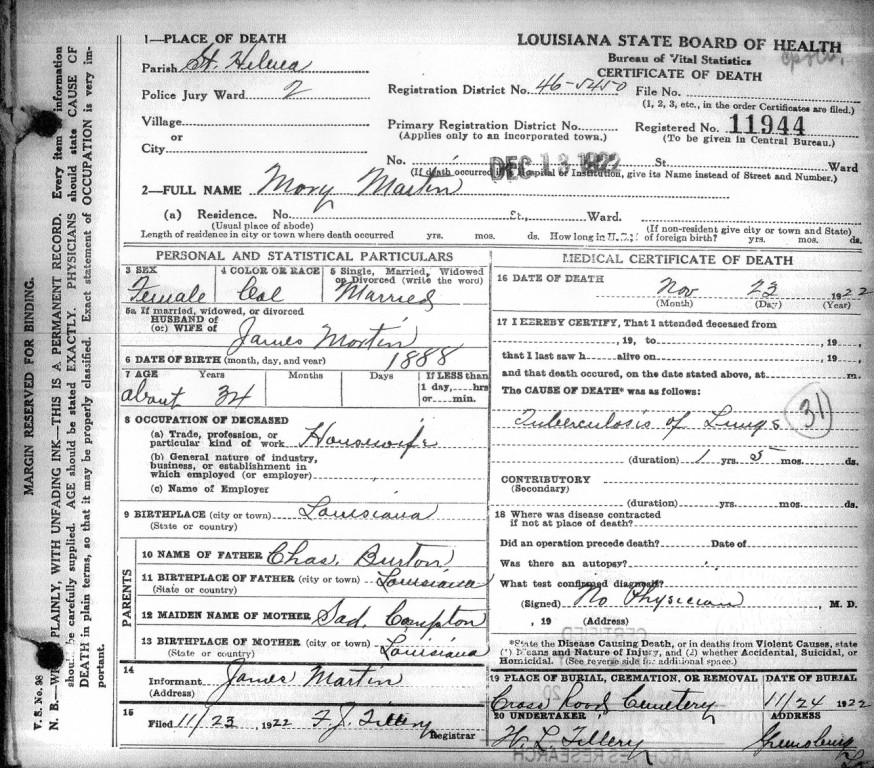 1—PLACE OF DEATH
Parish St. Helena
Police Jury Ward 2
Village
or
City
LOUISIANA STATE BOARD OF HEALTH
Bureau of Vital Statistics
CERTIFICATE OF DEATH
Registration District No. 46-5450 File No.
(1, 2, 3, etc., in the order Certificates are filed.)
Primary Registration District No. Registered No. 11944
(Applies only to an incorporated town.) (To be given in Central Bureau.)
No. St. Ward
DEC 13 1922
(If death occurred in a Hospital or Institution, give its Name instead of Street and Number.)
2—FULL NAME Mary Martin
(a) Residence. No. St., Ward.
(Usual place of abode) (If non-resident give city or town and State)
Length of residence in city or town where death occurred yrs. mos. ds. How long in U. S., if of foreign birth? yrs. mos. ds.
PERSONAL AND STATISTICAL PARTICULARS
3 SEX 4 COLOR OR RACE 5 Single, Married, Widowed
or Divorced (write the word)
Female Col Married
5a If married, widowed, or divorced
HUSBAND of
(or) WIFE of James Martin
6 DATE OF BIRTH (month, day, and year) 1888
7 AGE Years Months Days If LESS than
1 day,....hrs
or.....min.
about 34
8 OCCUPATION OF DECEASED
(a) Trade, profession, or
particular kind of work Housewife
(b) General nature of industry,
business, or establishment in
which employed (or employer)
(c) Name of Employer
9 BIRTHPLACE (city or town) Louisiana
(State or country)
PARENTS
10 NAME OF FATHER Chas. Burton
11 BIRTHPLACE OF FATHER (city or town) Louisiana
(State or country)
12 MAIDEN NAME OF MOTHER Sad. Compton
13 BIRTHPLACE OF MOTHER (city or town) Louisiana
(State or country)
14
Informant James Martin
(Address)
15
Filed 11/23, 1922 F. J. Tillery
Registrar
MEDICAL CERTIFICATE OF DEATH
16 DATE OF DEATH Nov 23 1922
(Month) (Day) (Year)
17 I HEREBY CERTIFY, That I attended deceased from
, 19 , to , 19 ,
that I last saw h alive on , 19 ,
and that death occurred, on the date stated above, at m.
The CAUSE OF DEATH* was as follows:
Tuberculosis of Lungs 31
(duration) 1 yrs. 5 mos. ds.
CONTRIBUTORY
(Secondary)
(duration) yrs. mos. ds.
18 Where was disease contracted
if not at place of death?
Did an operation precede death? Date of
Was there an autopsy?
What test confirmed diagnosis?
(Signed) No Physician , M. D.
, 19 (Address)
*State the Disease Causing Death, or in deaths from Violent Causes, state
(1) Means and Nature of Injury, and (2) whether Accidental, Suicidal, or
Homicidal. (See reverse side for additional space.)
19 PLACE OF BURIAL, CREMATION, OR REMOVAL DATE OF BURIAL
Cross Roads Cemetery 11/24 1922
20 UNDERTAKER ADDRESS
H. L. Tillery Greensburg
La
MARGIN RESERVED FOR BINDING.
V. S. No. 98
N. B.—WRITE PLAINLY, WITH UNFADING INK—THIS IS A PERMANENT RECORD. Every item of information
should be carefully supplied. AGE should be stated EXACTLY. PHYSICIANS should state CAUSE OF
DEATH in plain terms, so that it may be properly classified. Exact statement of OCCUPATION is very im-
portant.